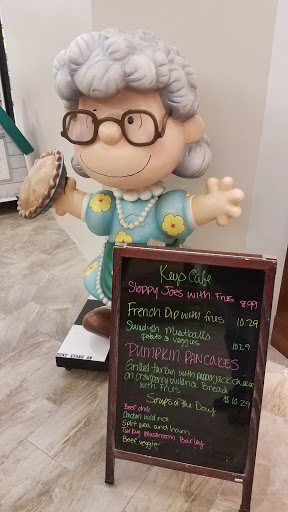 Keys Cafe
Sloppy Joes with Fries 8.99
French Dip with fries 10.29
Swedish Meatballs
potato & veggies 10.29
PUMPKIN PANCAKES
Grilled turkey with pepperjack cheese
on cranberry wildrice Bread
with Fries $10.29
Soups of the Day
Beef chili
Chicken wild rice
Split pea and ham
Turkey Mushroom Barley
Beef veggie
DONT STAND ON